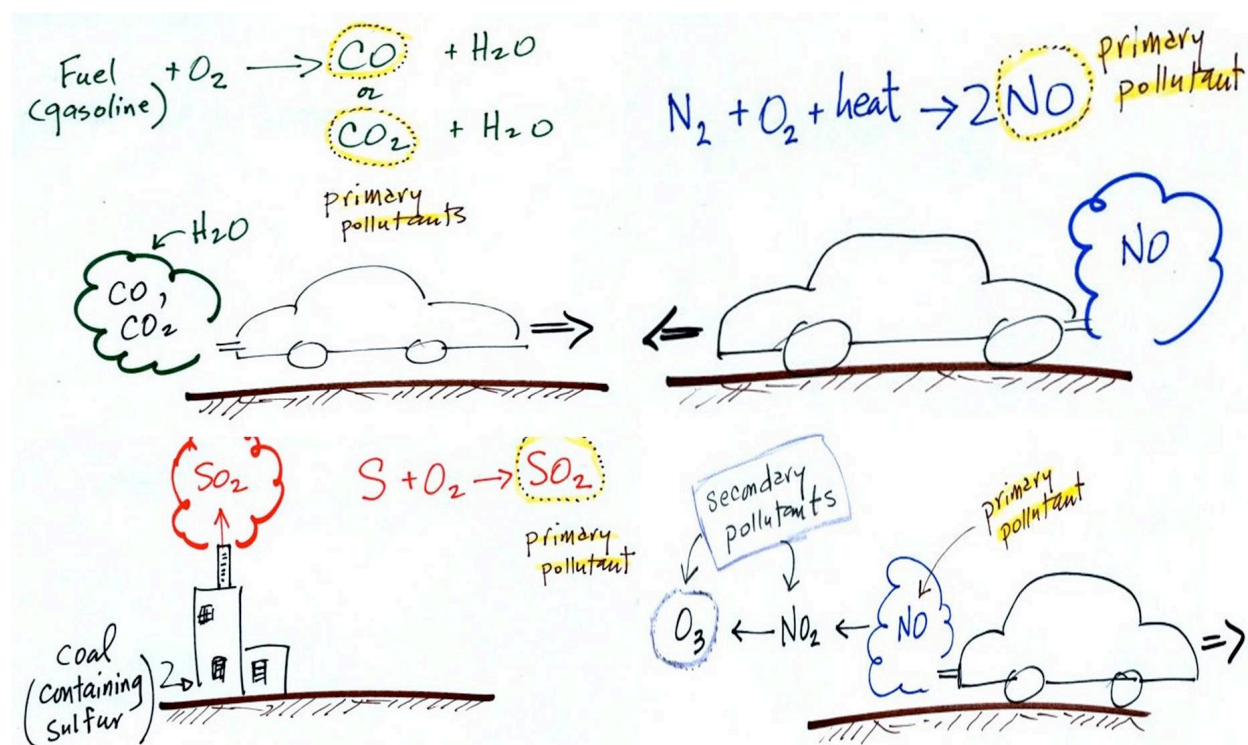 Fuel (gasoline) + O₂ ⟶ CO + H₂O
or
CO₂ + H₂O
primary
pollutants
H₂O
CO,
CO₂
N₂ + O₂ + heat → 2 NO
primary
pollutant
NO
SO₂
S + O₂ → SO₂
primary
pollutant
coal
(containing
sulfur)
secondary
pollutants
primary
pollutant
O₃ ← NO₂ ← NO